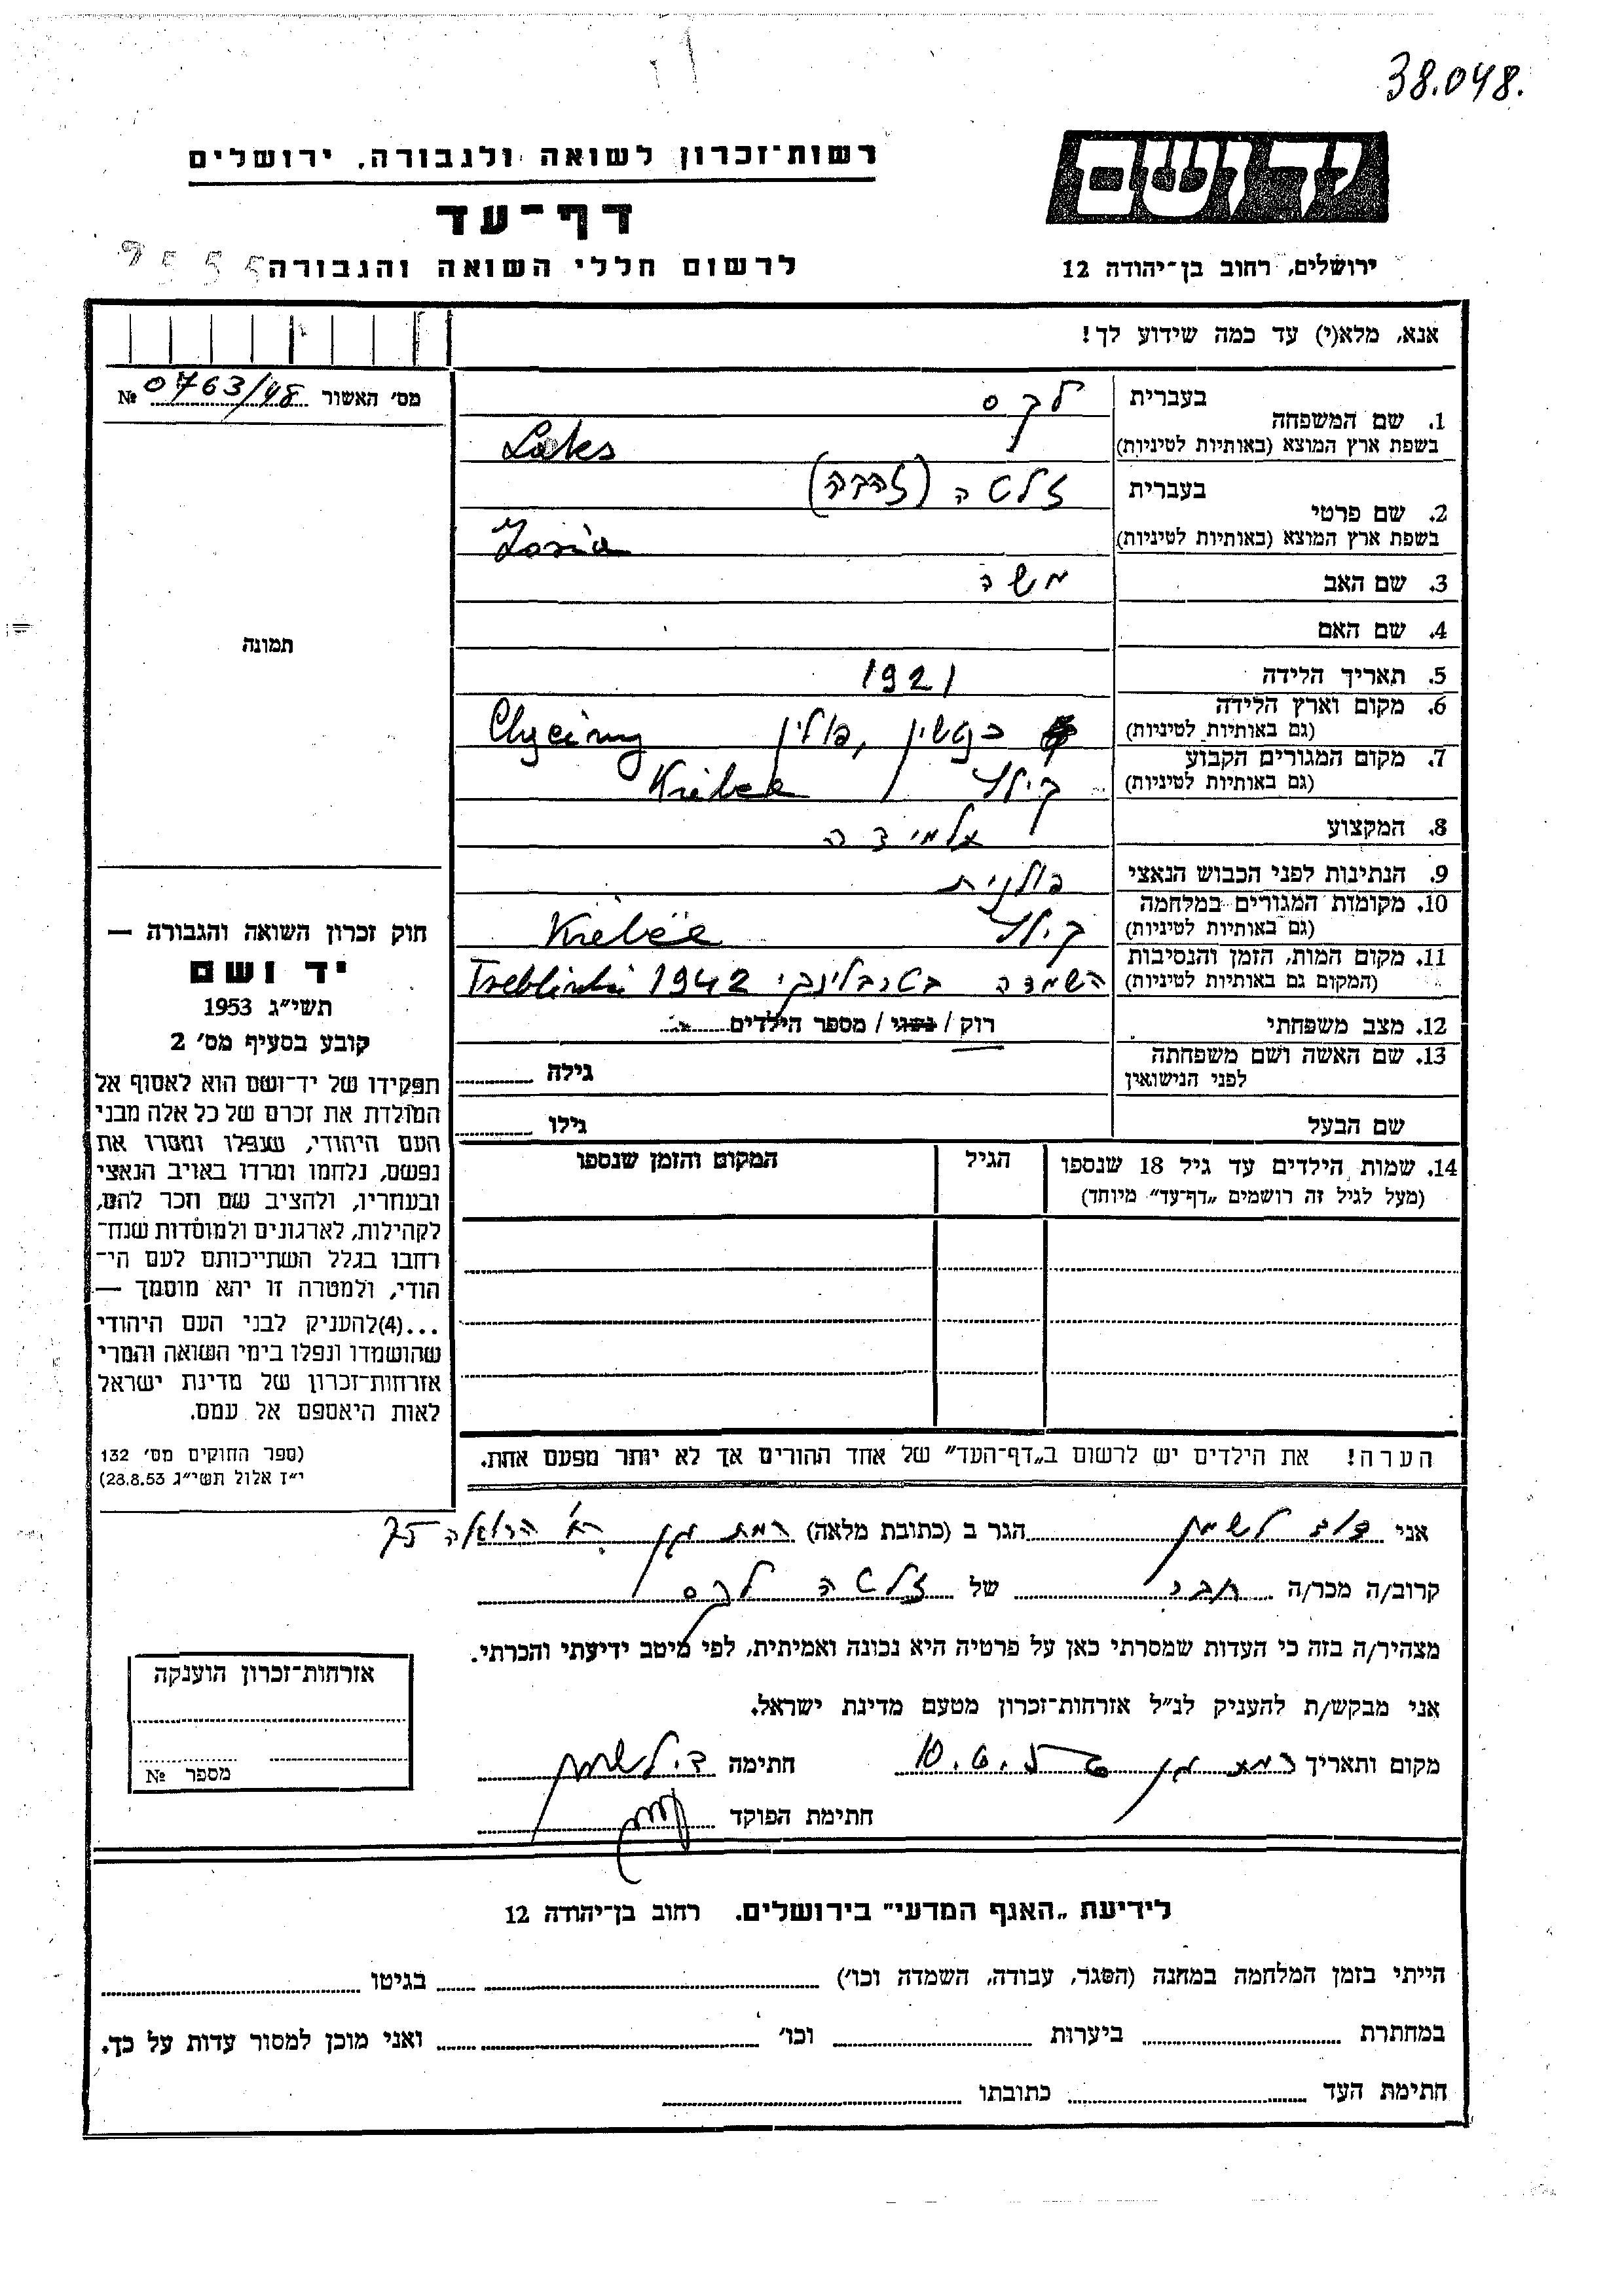 38.048.
יד ושם
רשות־זכרון לשואה ולגבורה, ירושלים
דף־עד
לרשום חללי השואה והגבורה
ירושלים, רחוב בן־יהודה 12
אנא, מלא(י) עד כמה שידוע לך!
מס׳ האשור № 0763/48
בעברית לקס
1. שם המשפחה
בשפת ארץ המוצא (באותיות לטיניות) Laks
בעברית זלטה (זהבה)
2. שם פרטי
בשפת ארץ המוצא (באותיות לטיניות) Zosia
3. שם האב משה
4. שם האם
תמונה
5. תאריך הלידה 1921
6. מקום וארץ הלידה
(גם באותיות לטיניות) פולין
7. מקום המגורים הקבוע
(גם באותיות לטיניות)
8. המקצוע תלמידה
9. הנתינות לפני הכבוש הנאצי פולנית
10. מקומות המגורים במלחמה
(גם באותיות לטיניות)
11. מקום המות, הזמן והנסיבות
(המקום גם באותיות לטיניות) השמדה בטרבלינקי 1942 Treblinki
12. מצב משפחתי רוק / נשוי / מספר הילדים
13. שם האשה ושם משפחתה גילה
לפני הנישואין
שם הבעל גילו
14. שמות הילדים עד גיל 18 שנספו הגיל המקום והזמן שנספו
(מעל לגיל זה רושמים „דף־עד״ מיוחד)
הערה! את הילדים יש לרשום ב„דף־העד״ של אחד ההורים אך לא יותר מפעם אחת.
חוק זכרון השואה והגבורה —
יד ושם
תשי״ג 1953
קובע בסעיף מס׳ 2
תפקידו של יד־ושם הוא לאסוף אל
המולדת את זכרם של כל אלה מבני
העם היהודי, שנפלו ומסרו את
נפשם, נלחמו ומרדו באויב הנאצי
ובעוזריו, ולהציב שם וזכר להם,
לקהילות, לארגונים ולמוסדות שנח־
רבו בגלל השתייכותם לעם הי־
הודי, ולמטרה זו יהא מוסמך —
...(4)להעניק לבני העם היהודי
שהושמדו ונפלו בימי השואה והמרי
אזרחות־זכרון של מדינת ישראל
לאות היאספם אל עמם.
(ספר החוקים מס׳ 132
י״ז אלול תשי״ג 28.8.53)
אני דוד לשמן הגר ב (כתובת מלאה) רמת גן הרואה 75
קרוב/ה מכר/ה חבר של זלטה לקס
מצהיר/ה בזה כי העדות שמסרתי כאן על פרטיה היא נכונה ואמיתית, לפי מיטב ידיעתי והכרתי.
אני מבקש/ת להעניק לנ״ל אזרחות־זכרון מטעם מדינת ישראל.
מקום ותאריך רמת גן חתימה ד. לשמן
חתימת הפוקד
אזרחות־זכרון הוענקה
מספר №
לידיעת „האגף המדעי״ בירושלים. רחוב בן־יהודה 12
הייתי בזמן המלחמה במחנה (הסגר, עבודה, השמדה וכו׳) בגיטו
במחתרת ביערות וכו׳ ואני מוכן למסור עדות על כך.
חתימת העד כתובתו